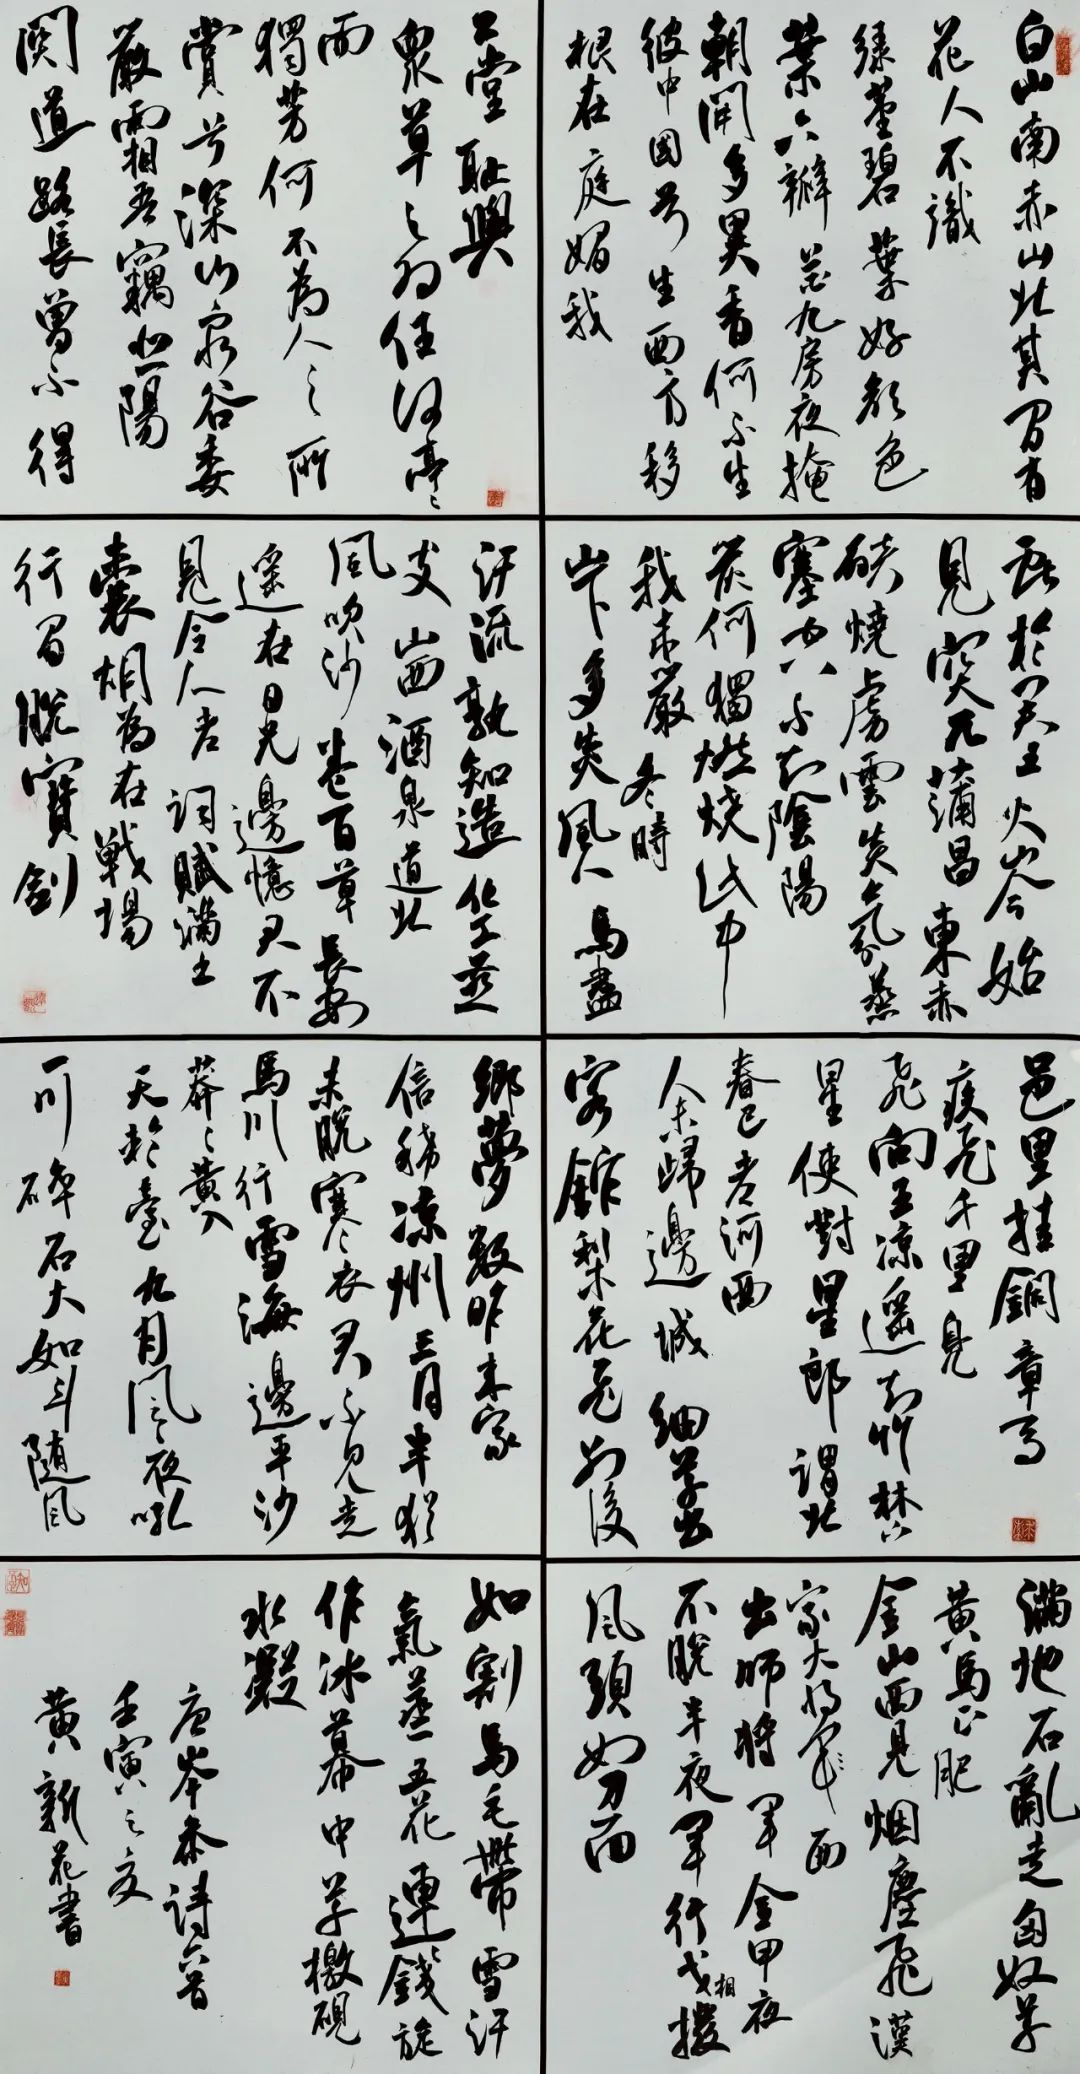 白山南赤山北其间有
花人不識
绿茎碧葉好颜色
葉六瓣花九房夜掩
朝開多異香何不生
彼中國兮生西方移
根在庭媚我
公堂耻與
衆草之为伍何亭亭
而
獨芳何不為人之所
賞兮深山窮谷委
嚴霜吾竊悲陽
関道路長曾不得
献於君王火山今始
見突兀蒲昌東赤
焰燒虜雲炎氛蒸
塞空不知陰陽
炭何獨燃烧此中
我来嚴冬時
山下多炎風人馬盡
汗流孰知造化工燕
支山西酒泉道北
風吹沙卷百草長安
遥在日光邊憶君不
見令人老詞賦滿书
囊胡為在戰場
行間脱寶劍
邑里挂銅章馬
疾飛千里凫
飛向五凉遥知竹林下
星使對星郎渭北
春已老河西
人未歸邊城細草出
客館梨花飛别後
鄉夢数昨来家
信稀凉州三月半猶
未脱寒衣君不見走
馬川行雪海邊平沙
莽莽黄入
天輪臺九月風夜吼
一川碎石大如斗随風
滿地石亂走匈奴草
黄馬正肥
金山西見烟塵飛漢
家大將軍西
出師將軍金甲夜
不脱半夜軍行戈相撥
風頭如刀面
如割馬毛帶雪汗
氣蒸五花連錢旋
作冰幕中草檄硯
水凝
唐岑参詩六首
壬寅之夏
黄新花書